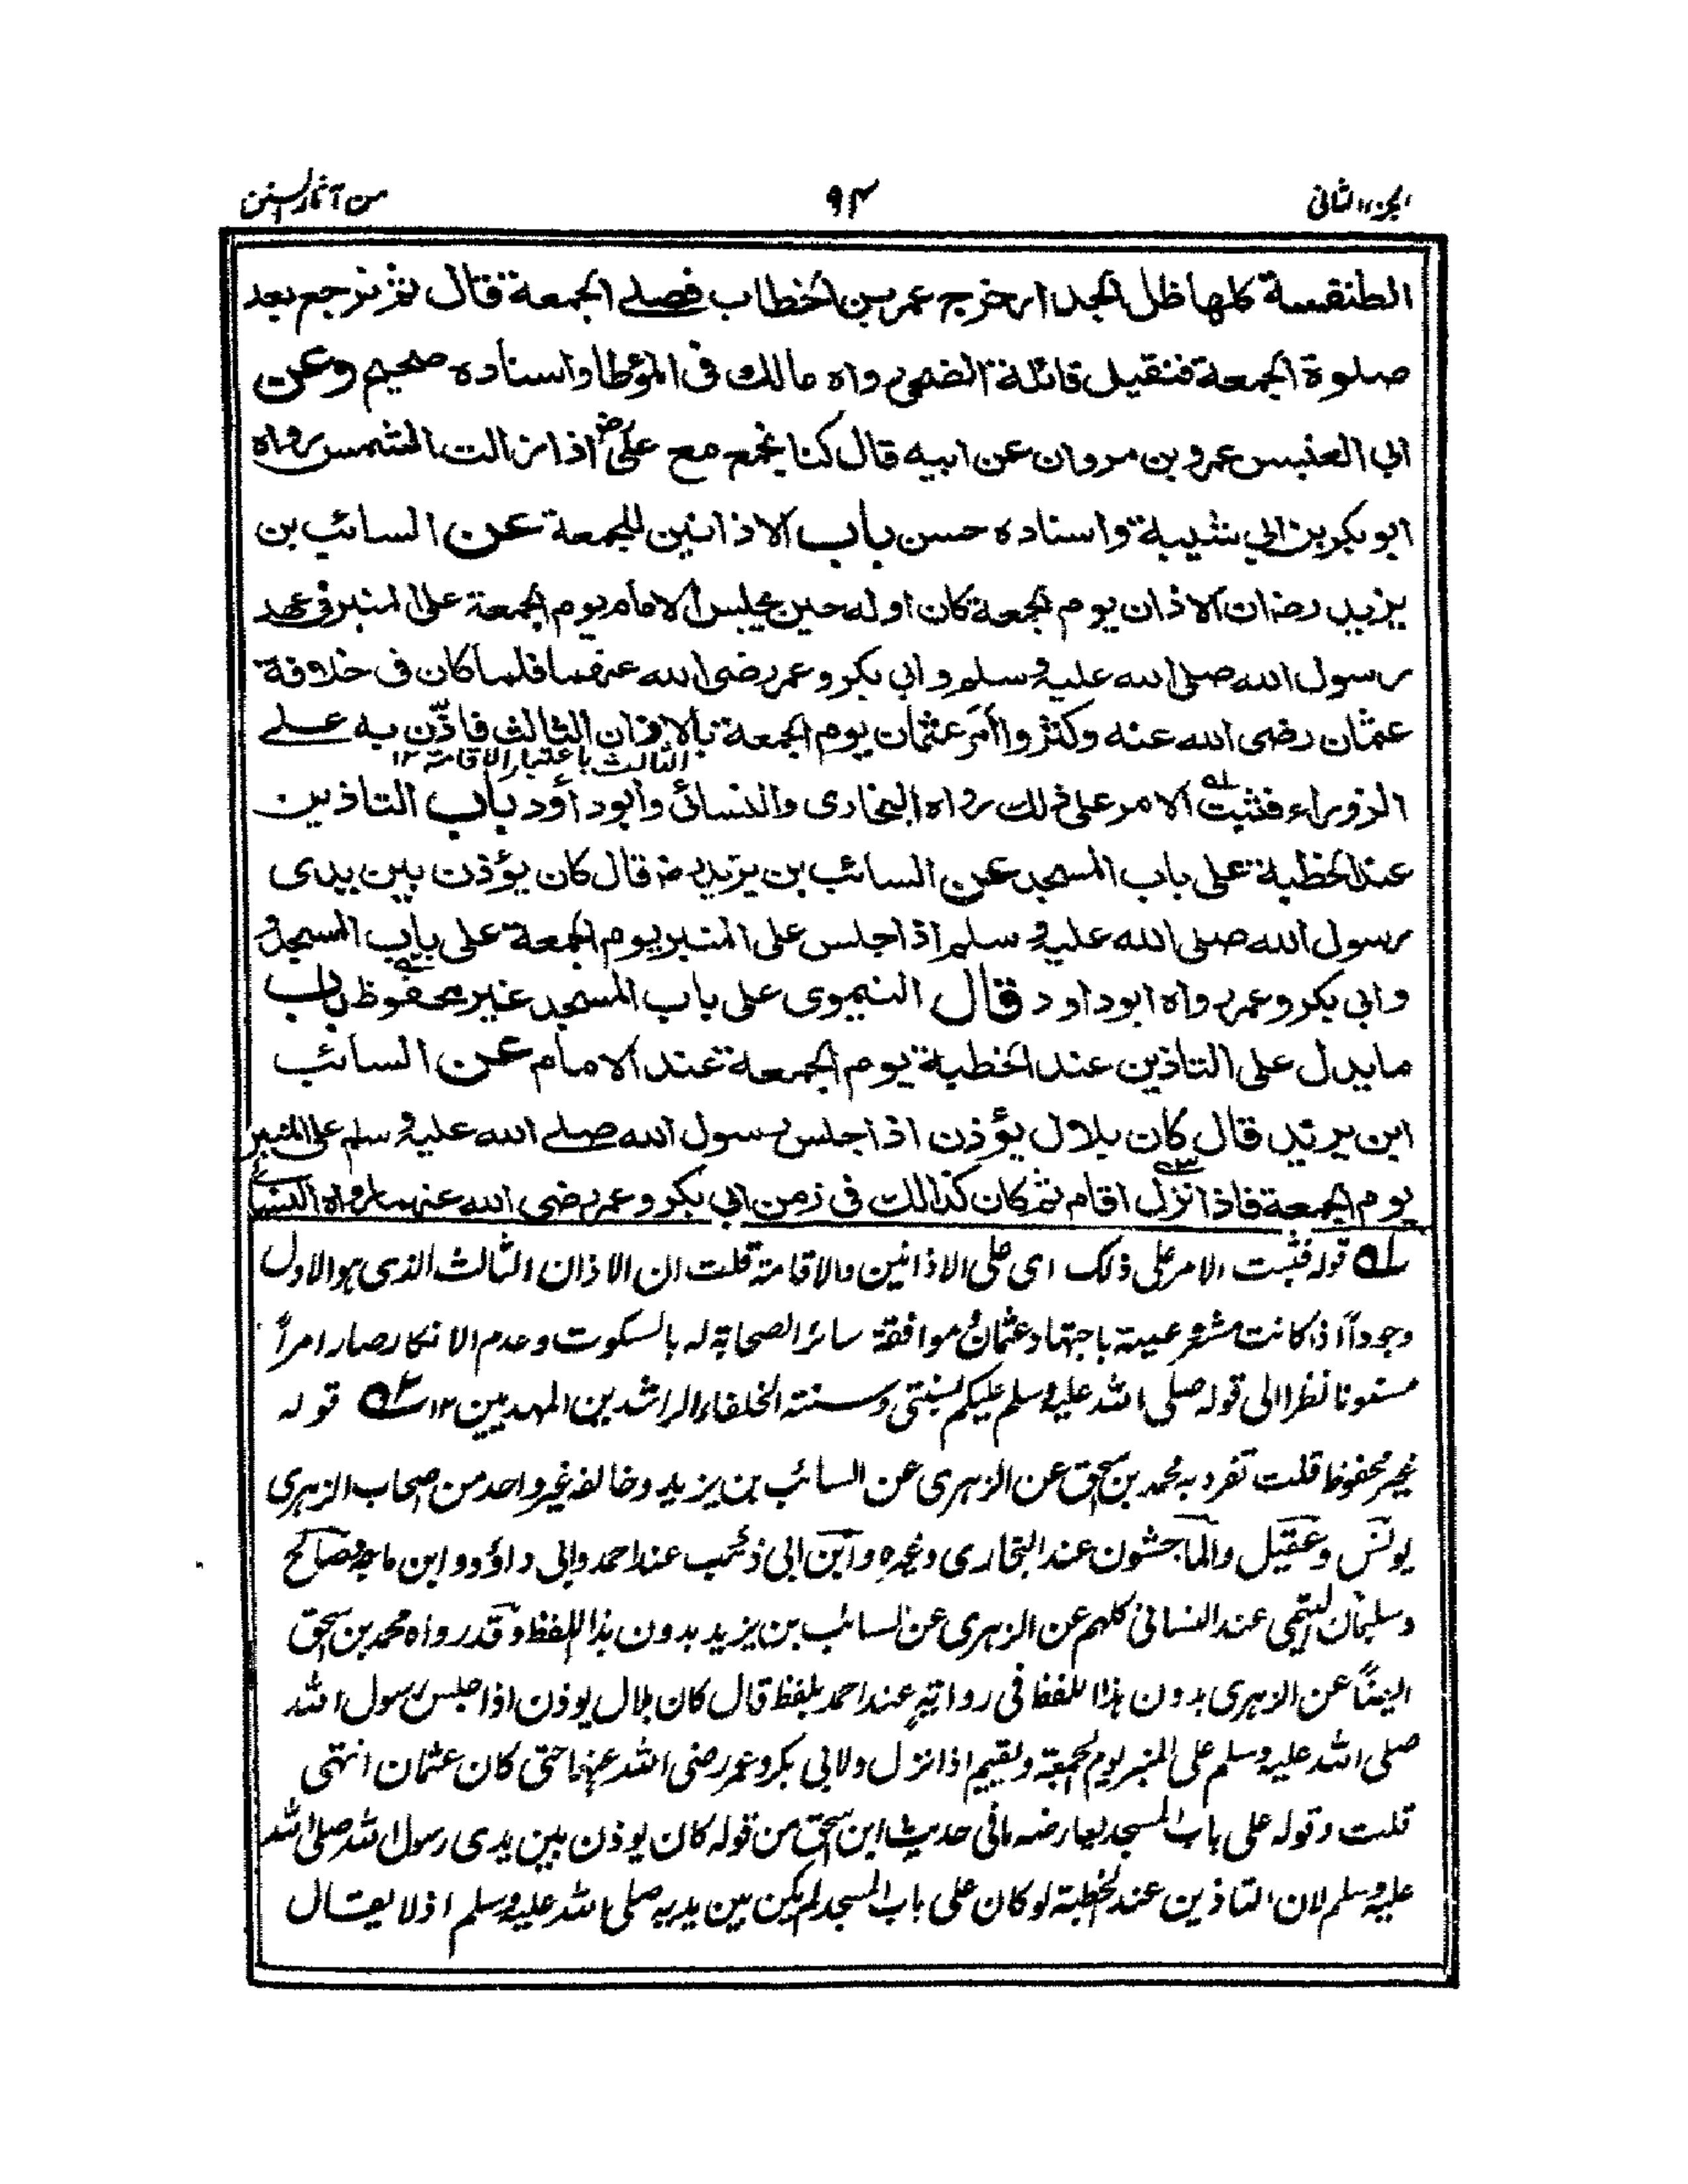 الجزء الثانی
۹۴
من آثار السنن
الطنفسة كلها ظل الجدار خرج عمر بن الخطاب فصلے الجمعة قال ثم نرجع بعد
صلوة الجمعة فنقيل قائلة الضحی رواه مالك فی المؤطا واسناده صحيح وعن
ابی العنبس عمرو بن مروان عن ابيه قال كنا نجمع مع علیؓ اذا زالت الشمس رواه
ابو بكر بن ابی شيبة واسناده حسن باب الاذانين للجمعة عن السائب بن
يزيد رض ان الاذان يوم الجمعة كان اوله حين يجلس الامام يوم الجمعة علی المنبر فی عهد
رسول الله صلی الله عليه وسلم وابی بكر وعمر رضی الله عنهما فلما كان فی خلافة
عثمان رضی الله عنه وكثروا أمر عثمان يوم الجمعة بالاذان الثالث فاذّن به علے
الثالث باعتبار الاقامة ۱۲
الزوراء فثبت ۱ الامر علی ذلك رواه البخاری والنسائی وابوداؤد باب التاذين
عند الخطبة علی باب المسجد عن السائب بن يزيد رض قال كان يؤذن بين يدی
رسول الله صلی الله عليه وسلم اذا جلس علی المنبر يوم الجمعة علی باب المسجد و
وابی بكر وعمر رواه ابوداود قال النيموی علی باب المسجد غير محفوظ ۲ باب
ما يدل علی التاذين عند الخطبة يوم الجمعة عند الامام عن السائب
ابن يزيد قال كان بلال يؤذن اذا جلس رسول الله صلے الله عليه وسلم علی المنبر
يوم الجمعة فاذا نزل ۳ اقام ثم كان كذالك فی زمن ابی بكر وعمر رضی الله عنهما رواه النسائے
۱ قوله فثبت الامر علی ذلك ای علی الاذانين والاقامة قلت ان الاذان الثالث الذی هو الاول
وجوداً اذا كانت مشروعيته باجتهاد عثمانؓ موافقة سائر الصحابة له بالسكوت وعدم الانكار صار امراً
مسنونا نظرا الی قوله صلی الله عليه وسلم عليكم بسنتی وسنته الخلفاء الراشدين المهديين ۱۲ ۲ قوله
غير محفوظ قلت تفرد به محمد بن سحق عن الزهری عن السائب بن يزيد وخالفه غير واحد من اصحاب الزهری
يونس وعقيل والماجشون عند البخاری وغيره وابن ابی ذئب عند احمد وابی داؤد وابن ماجه وصالح
وسليمان التيمی عند النسائی كلهم عن الزهری عن السائب بن يزيد بدون هذا اللفظ وقد رواه محمد بن سحق
ايضاً عن الزهری بدون هذا اللفظ فی روايته عند احمد بلفظ قال كان بلال يوذن اذا جلس رسول الله
صلی الله عليه وسلم علی المنبر يوم الجمعة ويقيم اذا نزل ولابی بكر وعمر رضی الله عنهما حتی كان عثمان انتهی
قلت وقوله علی باب المسجد يعارضه مافی حديث ابن سحق من قوله كان يوذن بين يدی رسول الله صلی الله
عليه وسلم لان التاذين عند الخطبة لو كان علی باب المسجد لم يكن بين يديه صلی الله عليه وسلم اذ لا يقال